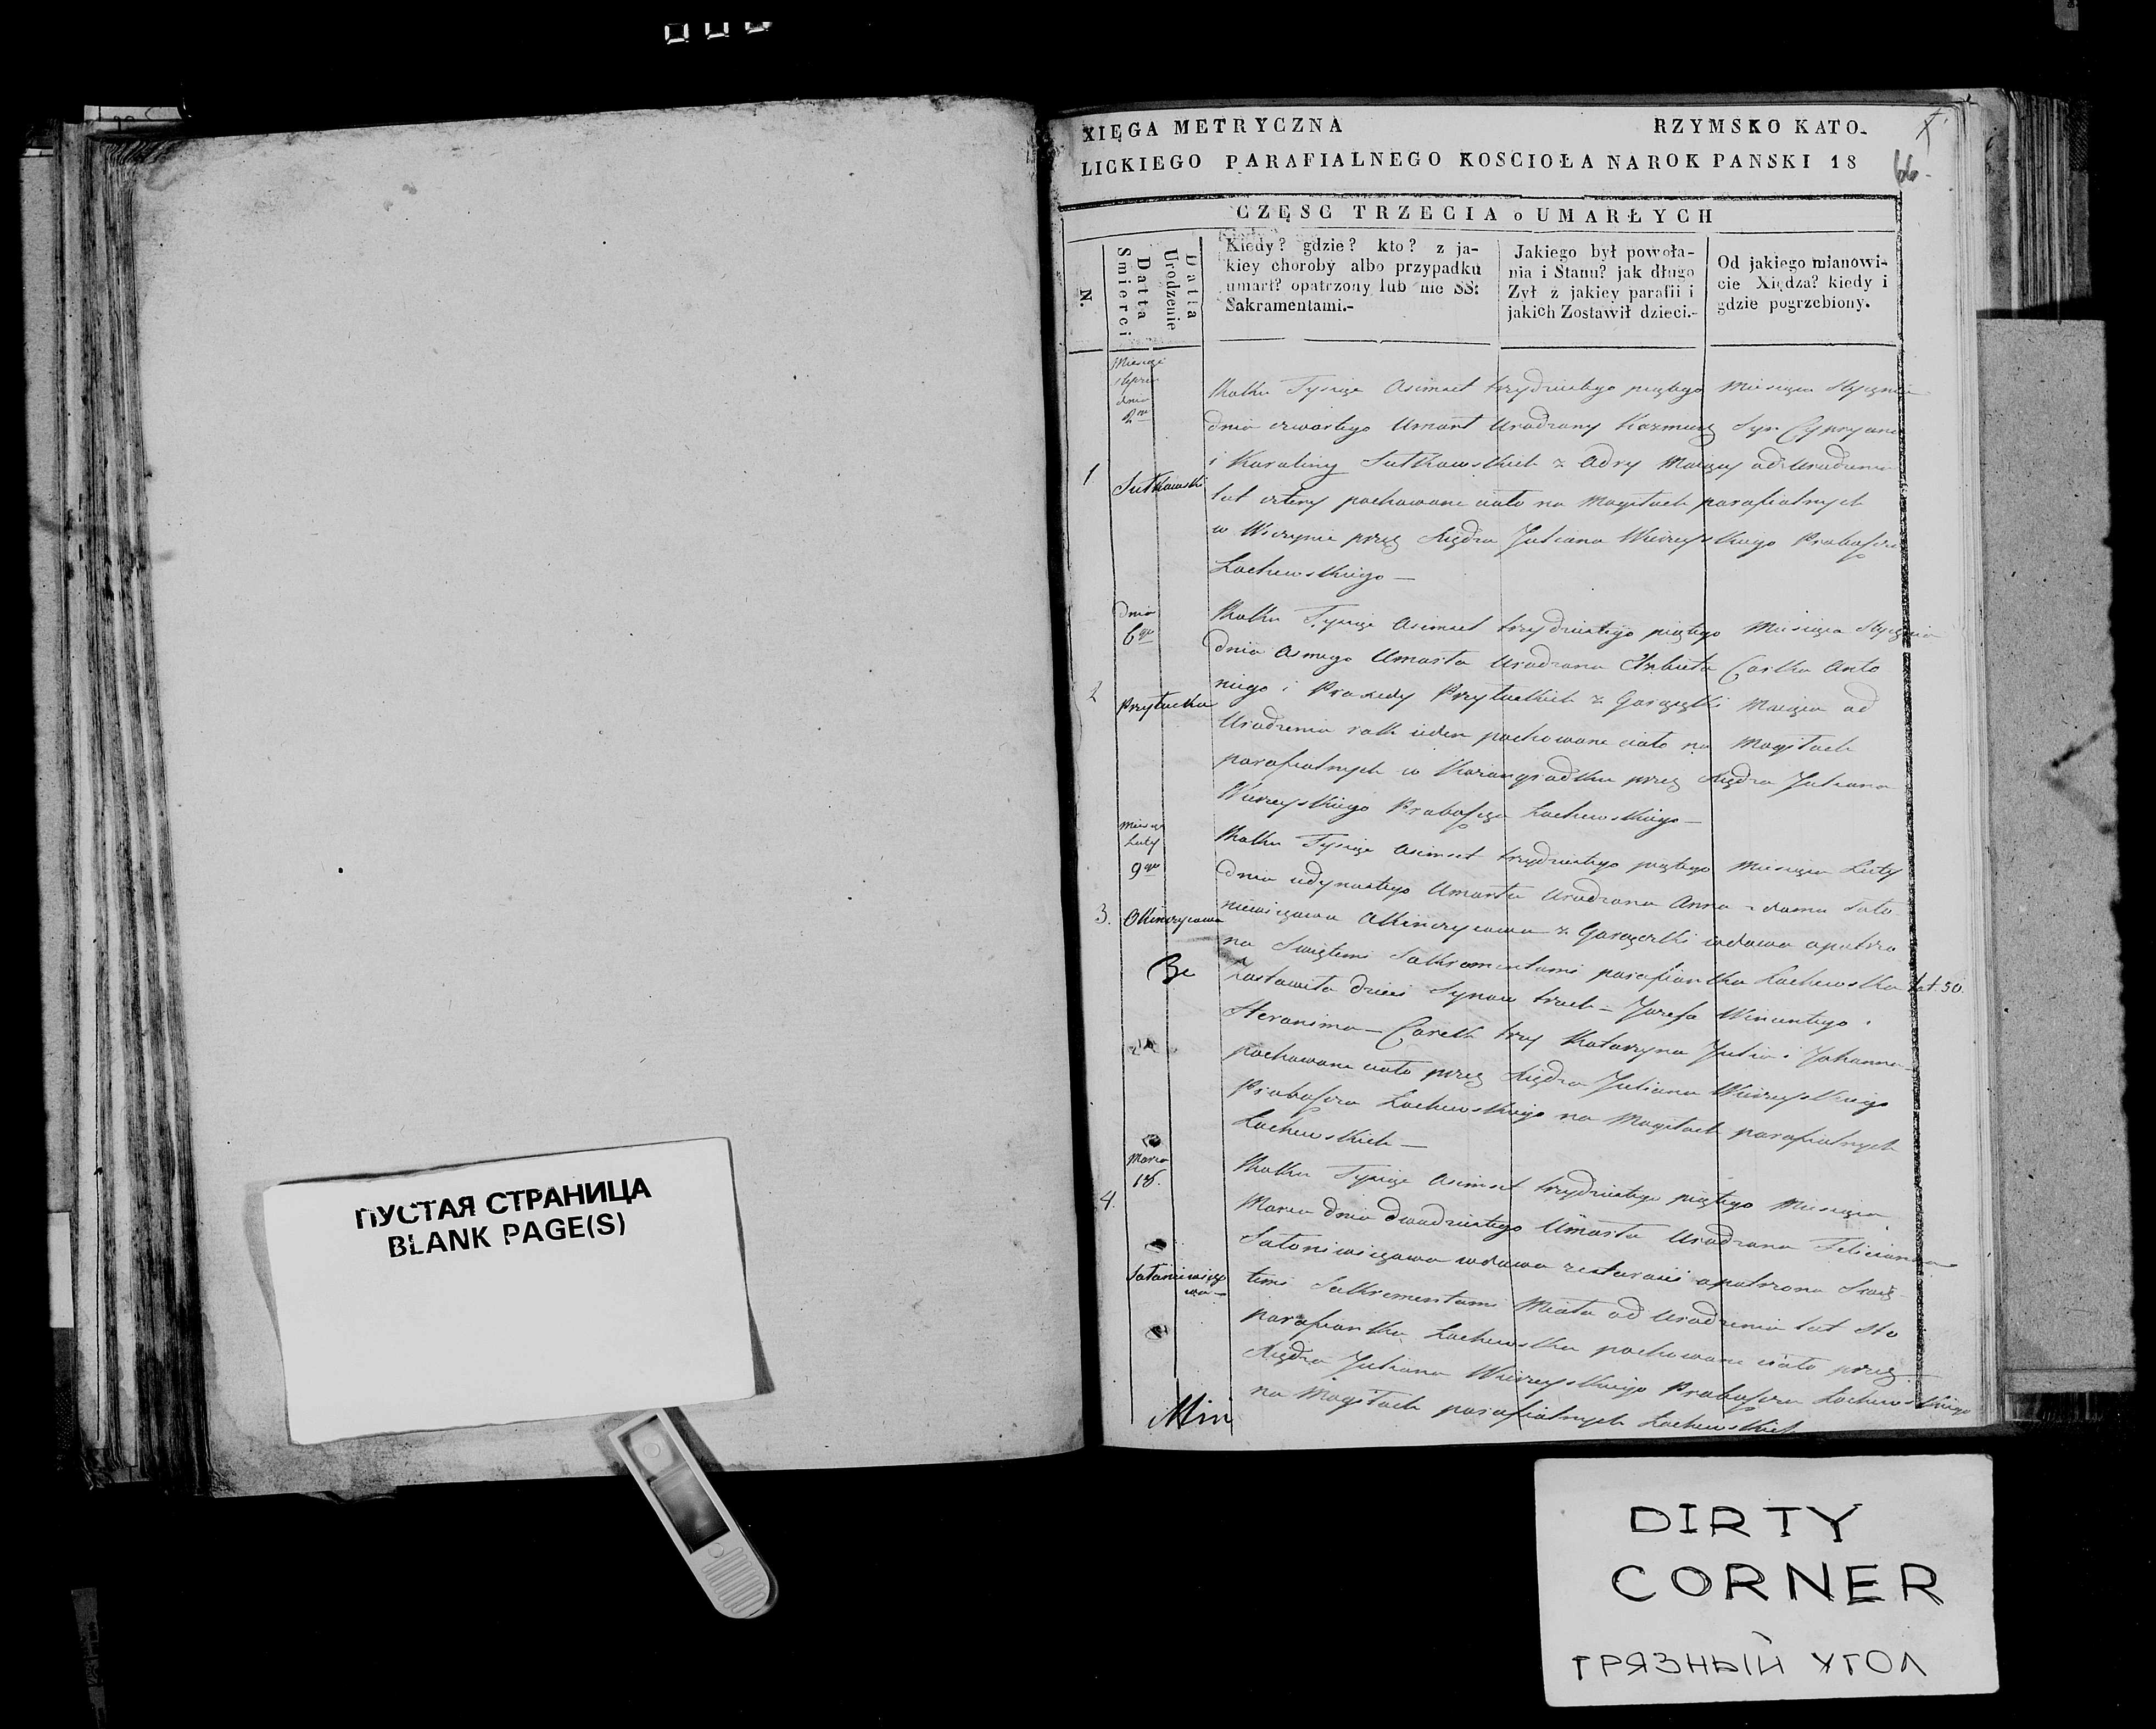 XIĘGA METRYCZNA RZYMSKO KATO-
LICKIEGO PARAFIALNEGO KOSCIOŁA NA ROK PANSKI 18
66.
CZĘSC TRZECIA o UMARŁYCH
N.
Datta Smierci
Datta Urodzenie
Kiedy? gdzie? kto? z ja-
kiey choroby albo przypadku
umarł? opatrzony lub nie SS:
Sakramentami.-
Jakiego był powoła-
nia i Stanu? jak długo
Zył z jakiey parafii i
jakich Zostawił dzieci.-
Od jakiego mianowi-
cie Xiędza? kiedy i
gdzie pogrzebiony.
dnia
1
Sutkowski
Roku Tysiąc Osimset trzydziestego piątego Miesiąca Stycznia
dnia czwartego Umarł Urodzony Kazmierz Syn Cypryana
i Karoliny Sutkowskich z Adry Maiący od Urodzenia
lat cztery pochowane ciało na Mogiłach parafialnych
w przez Xiędza Juliana Proboszcza
Łachewskiego —
dnia
6go
2
Przyłucka
Roku Tysiąc Osimset trzydziestego piątego Miesiąca Stycznia
dnia Osmego Umarła Urodzona Elzbieta Corka Anto
niego i Praxedy Przyłuckich z Maiąca od
Urodzenia rok ieden pochowane ciało na Mogiłach
parafialnych w przez Xiędza Juliana
Proboszcza Łachewskiego —
Luty
9go
3.
Roku Tysiąc Osimset trzydziestego piątego Miesiąca Luty
dnia iedynastego Umarła Urodzona Anna z domu Sato
niewiczowa z wdowa opatrzo
na Swiętemi Sakramentami parafianka Łachewska lat 50.
Zostawiła dzieci Synow trzech — Jozefa Wincentego i
Hieronima — Corek trzy Katarzyna Julia i Johanna —
pochowane ciało przez Xiędza Juliana
Proboszcza Łachewskiego na Mogiłach parafialnych
Łachewskich —
Marca
18.
4.
Satoniewiczo
wa —
Roku Tysiąc Osimset trzydziestego piątego Miesiąca
Marca dnia dwudziestego Umarła Urodzona Feliciana
Satoniewiczowa wdowa ze starosci opatrzona Swię-
temi Sakramentami Miała od Urodzenia lat Sto
parafianka Łachewska pochowane ciało przez
Xiędza Juliana Proboszcza Łachewskiego
na Mogiłach parafialnych Łachewskich
ПУСТАЯ СТРАНИЦА
BLANK PAGE(S)
DIRTY
CORNER
ГРЯЗНЫЙ УГОЛ